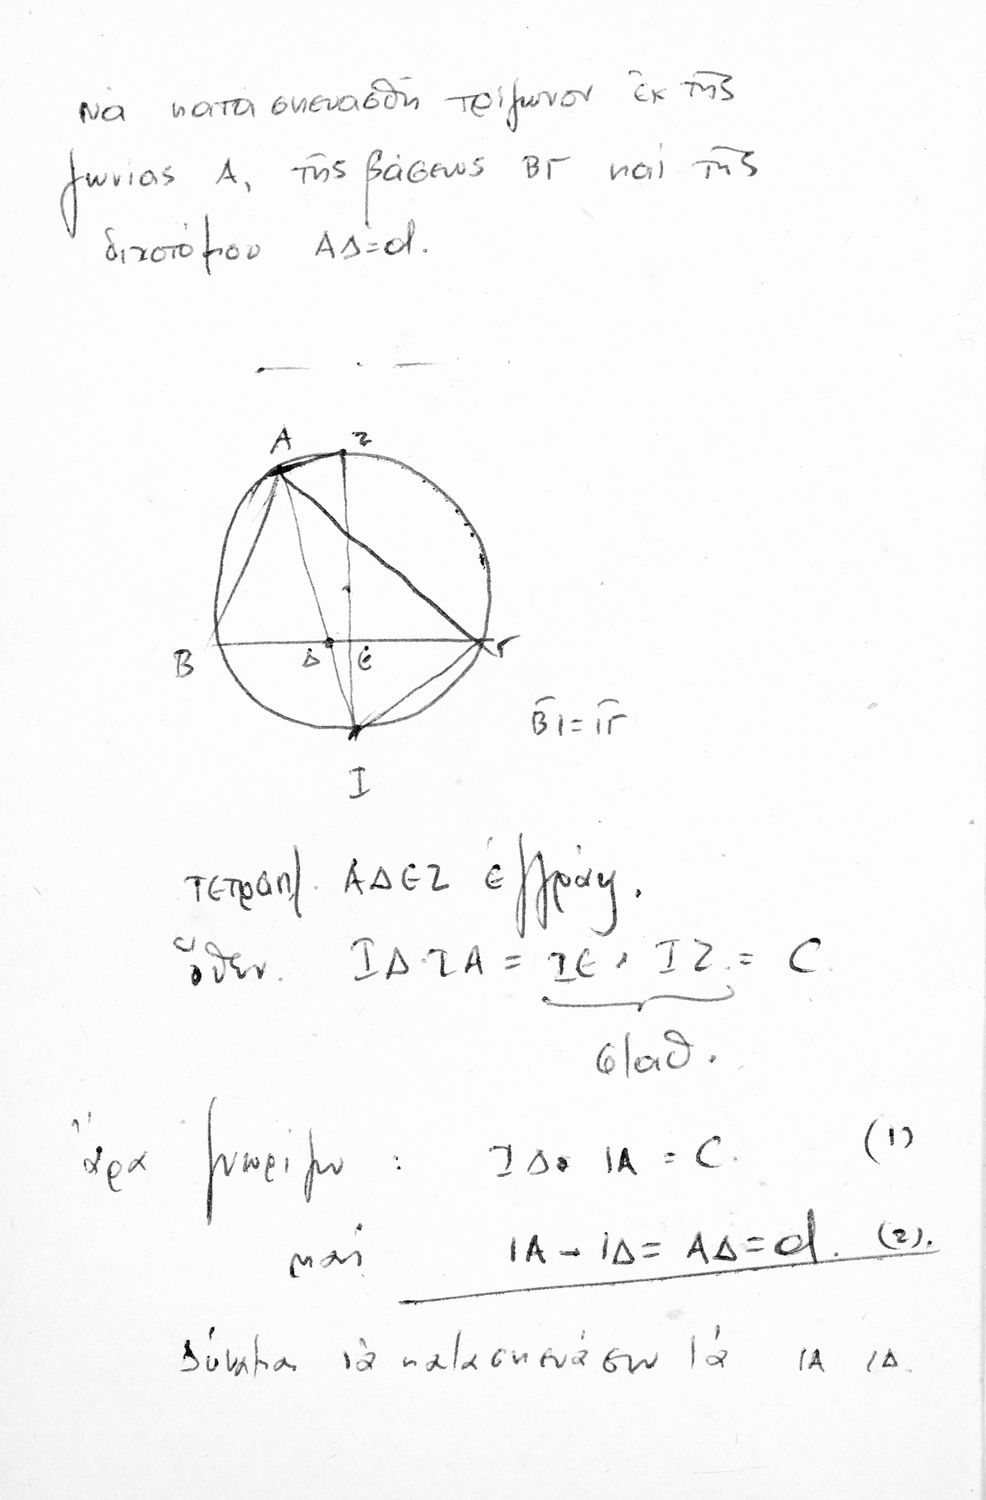 Νὰ κατασκευασθῆ τρίγωνον ἐκ τῆς
γωνίας Α, τῆς βάσεως ΒΓ καὶ τῆς
διχοτόμου ΑΔ=d.
Α Ζ
Β Δ Ε Γ
ΒΙ=ΙΓ
Ι
τετραπλ. ΑΔΕΖ ἐγγράψ.
ὅθεν. ΙΔ·ΙΑ = ΙΕ · ΙΖ = C
σταθ.
Ἄρα γνωρίζω : ΙΔ · ΙΑ = C. (1)
καὶ ΙΑ - ΙΔ = ΑΔ = d. (2).
Δύναμαι νὰ κατασκευάσω τὰ ΙΑ ΙΔ.